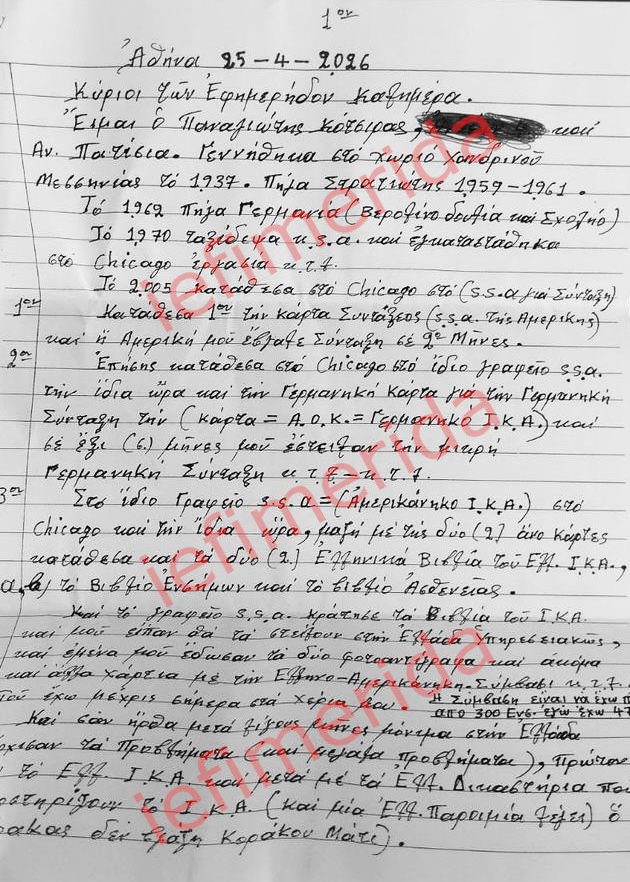 1ον
Ἀθήνα 25-4-2026
Κύριοι τῶν Ἐφημερήδον καλημέρα.
Εἶμαι ὁ Παναγιώτης Κότσιρας, καί
Αν. Πατίσια. Γεννήθηκα στό χωριό Χανδρινοῦ
Μεσσηνίας τό 1937. Πῆγα Στρατιώτης 1959-1961.
Τό 1962 πῆγα Γερμανία (Βερολίνο δουλιά καί Σχολιό)
Τό 1970 ταξίδεψα u.s.a. καί ἐγκαταστάθηκα
στό Chicago ἐργασία κ.τ.λ.
Τό 2005 κατάθεσα στό Chicago στό (s.s.a γιά Σύνταξη)
1ον Κατάθεσα 1ον τήν κάρτα Συντάξεος (s.s.a. τῆς Ἀμερικῆς)
καί ἡ Ἀμερική μοῦ ἔβγαλε Σύνταξη σέ 2 Μῆνες.
2ον Ἐπήσης κατάθεσα στό Chicago στό ἴδιο γραφεῖο s.s.a.
τήν ἴδια ὥρα καί τήν Γερμανική Κάρτα γιά τήν Γερμανική
Σύνταξη τήν (κάρτα = A.O.K. = Γερμανικο Ι.Κ.Α.) καί
σέ ἕξι (6) μῆνες μοῦ ἔστειλαν τήν μικρή
Γερμανική Σύνταξη κ.τ.λ - κ.τ.λ.
3ον Στό ἴδιο Γραφεῖο s.s.a = (Ἀμερικάνηκο Ι.Κ.Α.) στό
Chicago καί τήν ἴδια ὥρα, μαζή μέ τῆς δύο (2) ἄνο κάρτες
κατάθεσα καί τά δύο (2) Ἑλληνικά Βιβλία τοῦ Ἑλλ. Ι.Κ.Α.,
a, b) τό Βιβλίο Ἐνσήμων καί τό βιβλίο Ἀσθενείας.
Καί τό γραφεῖο s.s.a. κράτησε τά Βιβλία τοῦ Ι.Κ.Α.
καί μοῦ εἶπαν θά τά στείλουν στήν Ἑλλάδα Ὑπηρεσειακῶς,
καί ἐμένα μοῦ ἔδωσαν τά δύο φοτοαντίγραφα καί ἀκόμα
καί ἄλλα χάρτια μέ τήν Ἑλληνο-Ἀμερικάνηκη. Σύμβασι κ.τ.λ.
Ποῦ ἔχω μέχρις σήμερα στά χέρια μου. Ἡ Σύμβαση εἶναι νά ἔχω
ἀπό 300 Ενσ. ἐγώ ἔχω 47
Καί σάν ἦρθα μετά λίγους μῆνες μόνιμα στήν Ἑλλάδα
ρχισαν τά Προβλήματα (καί μεγάλα προβλήματα), πρῶτον
τό Ἑλλ. Ι.Κ.Α. καί μετά μέ τά Ἑλλ. Δικαστήρια πού
οστηρίζουν τό Ι.Κ.Α. (καί μία Ἑλλ. Παροιμία λέγει) ὁ
ρακας δέν βγάζη Κοράκου Μάτι).
iefimerida
iefimerida
iefimerida
iefimerida